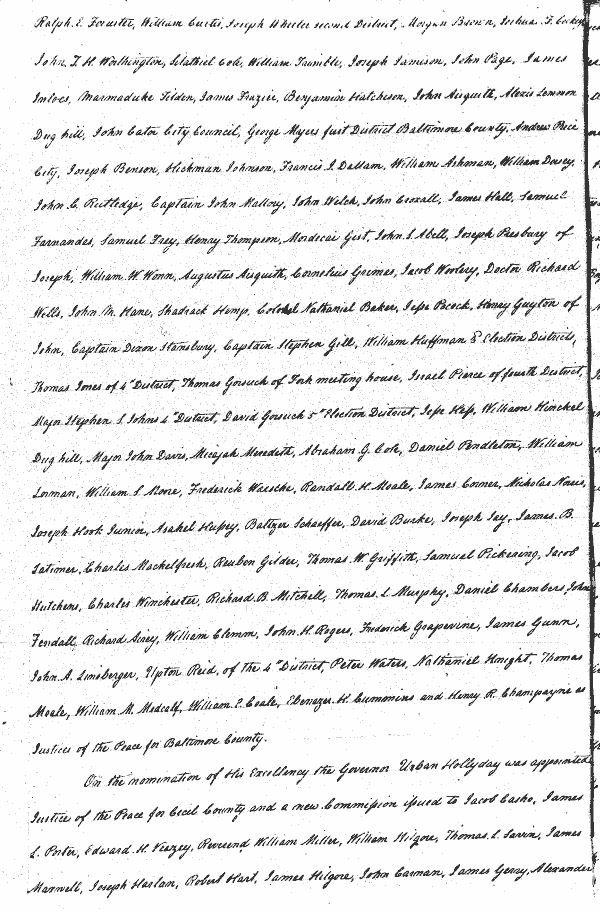 Ralph E. Forester, William Curtis, Joseph Wheeler second District, Morgan Brown, Joshua F. Cockey
John T. H. Worthington, Selathiel Cole, William Trumble, Joseph Jamison, John Page, James
Inloes, Marmaduke Tilden, James Frazier, Benjamin Hutcheson, John Asquith, Alexis Lemmon
Dug hill, John Eator City Council, George Myers first District Baltimore County, Andrew Price
City, Joseph Benson, Hickman Johnson, Francis J. Dallam, William Ashman, William Dorsey,
John C. Rutledge, Captain John Mallory, John Welch, John Croxall, James Hall, Samuel
Fernandes, Samuel Frey, Henry Thompson, Mordecai Gist, John S. Abell, Joseph Presbury of
Joseph, William W. Wonn, Augustus Asquith, Cornelius Grimes, Jacob Woolery, Doctor Richard
Wells, John M. Hane, Shadrack Kemp, Colonel Nathaniel Baker, Jesse Pocock, Henry Guyton of
John, Captain Dixon Stansbury, Captain Stephen Gill, William Huffman 8 Election Districts,
Thomas Jones of 4th District, Thomas Gorsuch of Fork meeting house, Israel Pierce of fourth District,
Major Stephen S. Johns 4th District, David Gorsuch 5th Election District, Jesse Hess, William Hinckel
Dug hill, Major John Davis, Micajah Meredith, Abraham G. Cole, Daniel Pendleton, William
Lorman, William S. Moore, Frederick Waesche, Randall H. Moale, James Corner, Nicholas Norris,
Joseph Hook Junior, Asahel Hussey, Baltzer Schaeffer, David Burke, Joseph Jay, James B.
Latimer, Charles Mackelfresh, Reuben Gilder, Thomas W. Griffith, Samuel Pickering, Jacob
Hutchens, Charles Winchester, Richard B. Mitchell, Thomas L. Murphy, Daniel Chambers, John
Fendall, Richard Airey, William Clemm, John H. Rogers, Frederick Grapevine, James Gunn,
John A. Lineberger, Upton Reid, of the 4th District, Peter Waters, Nathaniel Knight, Thomas
Moale, William M. Medcalf, William E. Coale, Ebenezer H. Cummins and Henry R. Champayne as
Justices of the Peace for Baltimore County.
On the nomination of His Excellency the Governor Urban Hollyday was appointed
Justice of the Peace for Cecil County and a new Commission issued to Jacob Casho, James
L. Porter, Edward H. Veazey, Reverend William Miller, William Kilgore, Thomas L. Savin, James
Maxwell, Joseph Harlan, Robert Hart, James Kilgore, John Carnan, James Gerry, Alexander